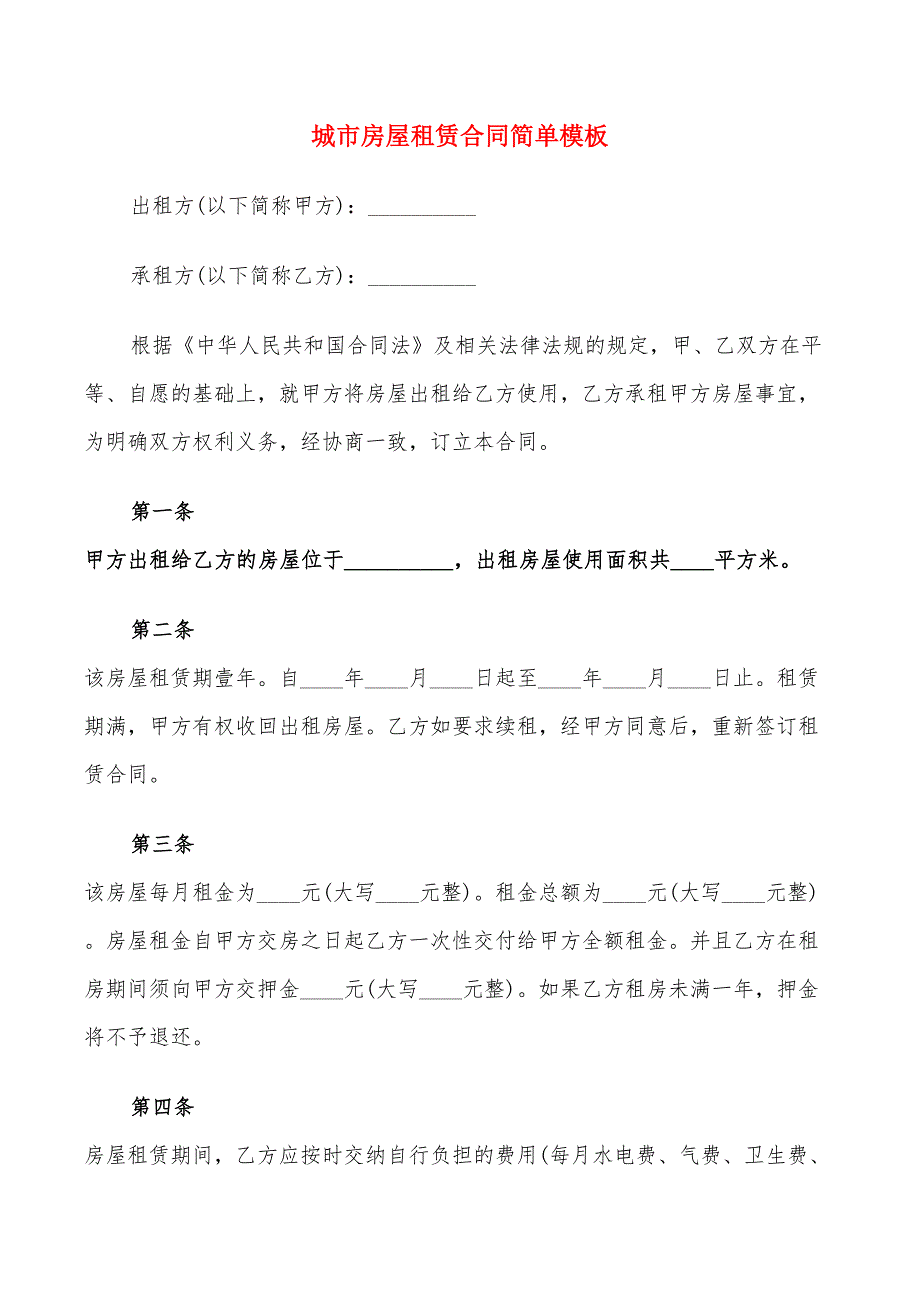 城市房屋租赁合同简单模板
出租方(以下简称甲方)：__________
承租方(以下简称乙方)：__________
根据《中华人民共和国合同法》及相关法律法规的规定，甲、乙双方在平
等、自愿的基础上，就甲方将房屋出租给乙方使用，乙方承租甲方房屋事宜，
为明确双方权利义务，经协商一致，订立本合同。
第一条
甲方出租给乙方的房屋位于__________，出租房屋使用面积共____平方米。
第二条
该房屋租赁期壹年。自____年____月____日起至____年____月____日止。租赁
期满，甲方有权收回出租房屋。乙方如要求续租，经甲方同意后，重新签订租
赁合同。
第三条
该房屋每月租金为____元(大写____元整)。租金总额为____元(大写____元整)
。房屋租金自甲方交房之日起乙方一次性交付给甲方全额租金。并且乙方在租
房期间须向甲方交押金____元(大写____元整)。如果乙方租房未满一年，押金
将不予退还。
第四条
房屋租赁期间，乙方应按时交纳自行负担的费用(每月水电费、气费、卫生费、